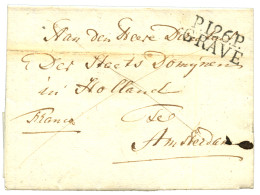 P.126.P.
GRAVE
Aan den Heere
Der Staets Domeynen
in Holland
Franco
Te
Amsterdam